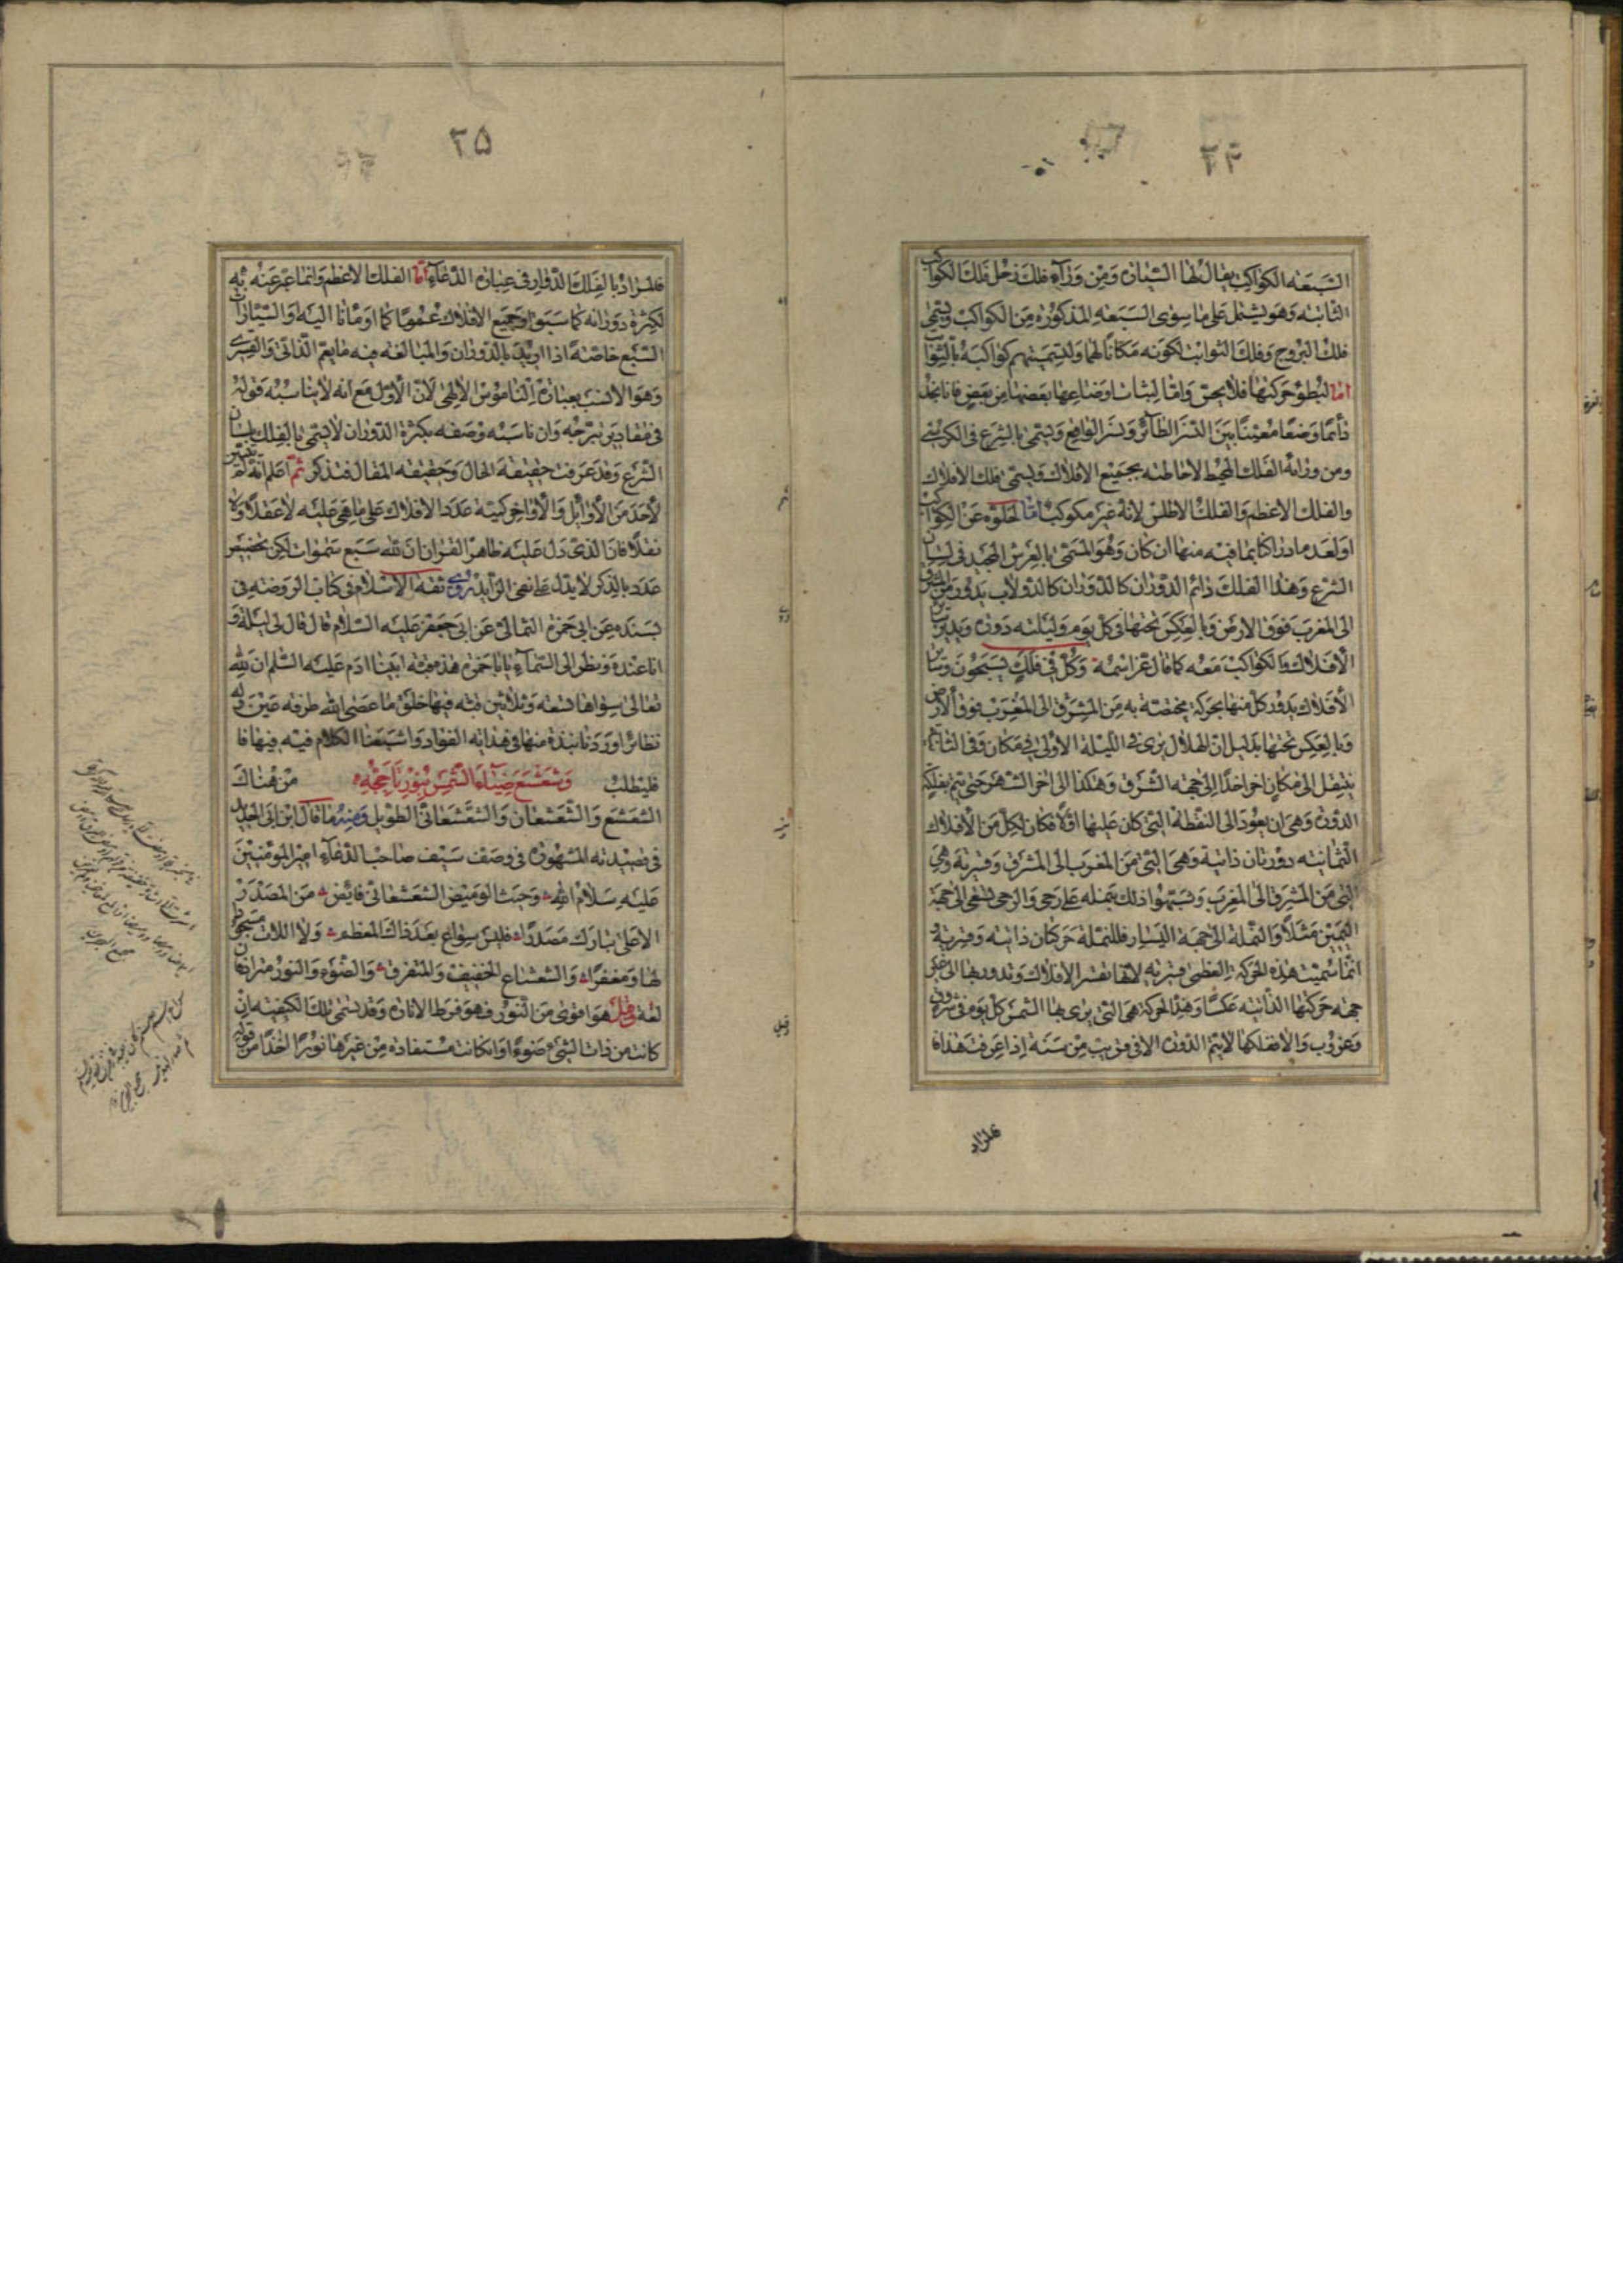 ٢۴
السبعه الكواكب يقال لها السيارة ومن وراء فلك زحل فلك الكواكب
الثابته وهو يشتمل على ما سوى السبعه المذكوره من الكواكب ويسمى
فلك البروج وفلك الثوابت لكونه مكانا لها ولتسميتهم كواكبه بالثوابت
اما لبطوء حركتها فلا يحس واما لثبات اوضاعها بعضها من بعض فانا نجد
دائما وضعا معينا بين النسر الطائر ونسر الواقع ويسمى بالشرع في الكرسي
ومن ورائه الفلك المحيط لاحاطته بجميع الافلاك ويسمى فلك الافلاك
والفلك الاعظم والفلك الاطلس لانه غير مكوكب اما لخلوه عن الكواكب
او لعدم ادراكنا بما فيه منها ان كان وهو المسمى بالعرش المجيد في لسان
الشرع وهذا الفلك دائم الدوران كالدوران كالدولاب يدور من المشرق
الى المغرب فوق الارض وبالعكس تحتها في كل يوم وليلته دورة ويدير سائر
الافلاك والكواكب معه كما قال عز اسمه وكل في فلك يسبحون وسائر
الافلاك يدور كل منها بحركة مختصة به من المشرق الى المغرب فوق الارض
وبالعكس تحتها بدليل ان الهلال يرى في الليلة الاولى في مكان وفي الثانيه
ينتقل الى مكان اخر اخذا الى جهه الشرق وهكذا الى اخر الشهر حتى يتم بفلكه
الدورة وهي ان يعود الى النقطة التي كان عليها اولا فكان لكل من الافلاك
الثمانيه دورتان ذاتية وهي التي من المغرب الى المشرق وقسرية وهي
التي من المشرق الى المغرب وشبهوا ذلك بنمله على رحى والرحى تسعى الى جهة
اليمين مثلا والنملة الى جهة اليسار فللنملة حركتان ذاتيه وقسرية و
انما سميت هذه الحركة العظمى قسريه لانها تقسر الافلاك وتدور بها الى غير
جهة حركتها الذاتيه عكسا وهذه الحركة هي التي يرى بها الشمس كل يوم في شروق
وغروب والا ففلكها لا يتم الدورة الا في قريب من سنة اذا عرفت هذا فا
فلمراد
٢۵
فلمراد بالفلك الدوار في عبارة الدعاء اما الفلك الاعظم وانما عبر عنه به
لكثرة دورانه كما سبق او جميع الافلاك عموما كما اومأنا اليه والسيارات
السبع خاصة اذا اريد بالدوران والمبالغه فيه ما يعم الذاتي والقسري
وهو الانسب بعبارة الناموس الالهي لان الاول مع انه لا يناسبه قوله
في مقادير تبرجه وان ناسبه وصفه بكثرة الدوران لا يسمى بالفلك بلسان
الشرع وقد عرفت حقيقة الحال وحقيقه المقال فتذكر ثم اعلم انه لم يتبين
لاحد من الاوائل والاواخر كمية عدد الافلاك على ما هي عليه لا عقلا ولا
نقلا فان الذي دل عليه ظاهر القران ان لله سبع سموات لكن تخصيص
عدد بالذكر لا يدل على نفى الزايد روى ثقه الاسلام في كتاب الروضة في
بسنده عن ابي حمزة الثمالي عن ابي جعفر عليه السلام قال قال لي ليلة و
انا عنده ونظر الى السماء يا ابا حمزه هذه قبة ابينا ادم عليه السلم ان لله
تعالى سواها تسعة وثلثين قبه فيها خلق ما عصى الله طرفه عين وله
نظائر اوردنا نبذة منها في هدايه الفؤاد واشبعنا الكلام فيه فيها فا
فليطلب وشعشع ضياء الشمس بنور تأججه من هناك
الشعشع والشعشعان والشعشعاني الطويل ومنه ما قال ابن ابي الحديد
في قصيدته المشهورة في وصف سيف صاحب الدعاء امير المومنين
عليه سلام الله وحيث الوميض الشعشعاني فايض من المصدر
الاعلى تبارك مصدرا فليس سواع بعد ذاك المعظم ولا اللات مسجودا
لها ومعفرا والشعشاع الخفيف والمتفرق والضوء والنور مترادفان
لغه وقيل هو اقوى من النور فهو فرط الانارة وقد يسمى تلك الكيفيه ان
كانت من ذات الشئ ضوءا وان كانت مستفادة من غيرها نورا اخذا من قوله